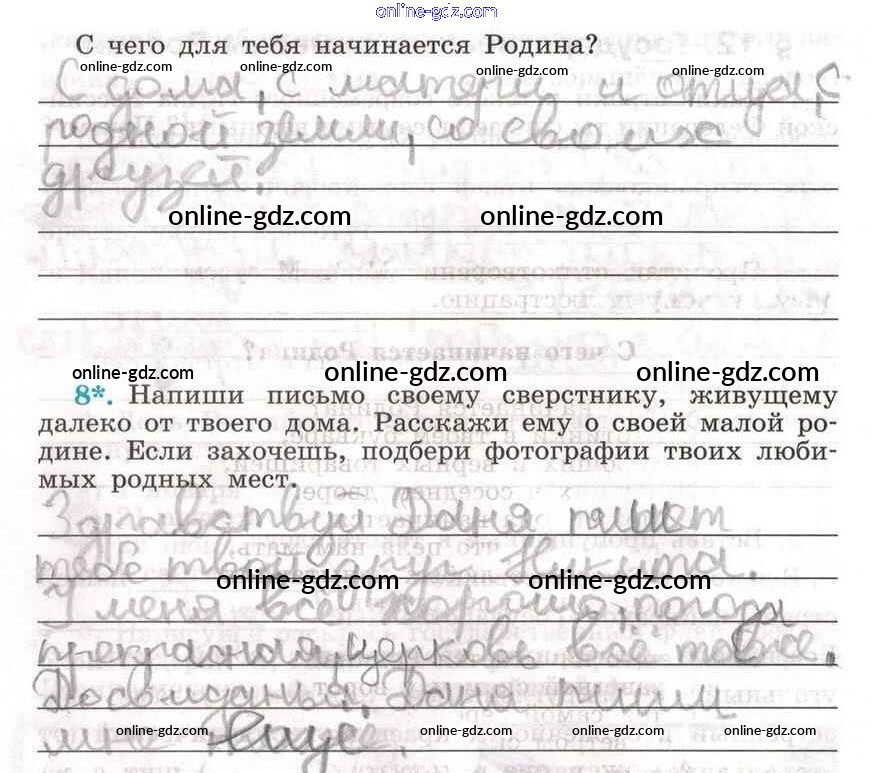 online-gdz.com
С чего для тебя начинается Родина?
online-gdz.com online-gdz.com online-gdz.com online-gdz.com
С дома, с матери и отца, с
родной земли, со своих
друзей.
online-gdz.com online-gdz.com
online-gdz.com online-gdz.com online-gdz.com
8*. Напиши письмо своему сверстнику, живущему
далеко от твоего дома. Расскажи ему о своей малой ро-
дине. Если захочешь, подбери фотографии твоих люби-
мых родных мест.
Здравствуй Даня пишет
тебе твой друг Никита.
online-gdz.com online-gdz.com
У меня все хорошо, погода
прекрасная, церковь всё таже.
Досвидания. Даня пиши
мне ещё.
online-gdz.com online-gdz.com online-gdz.com online-gdz.com